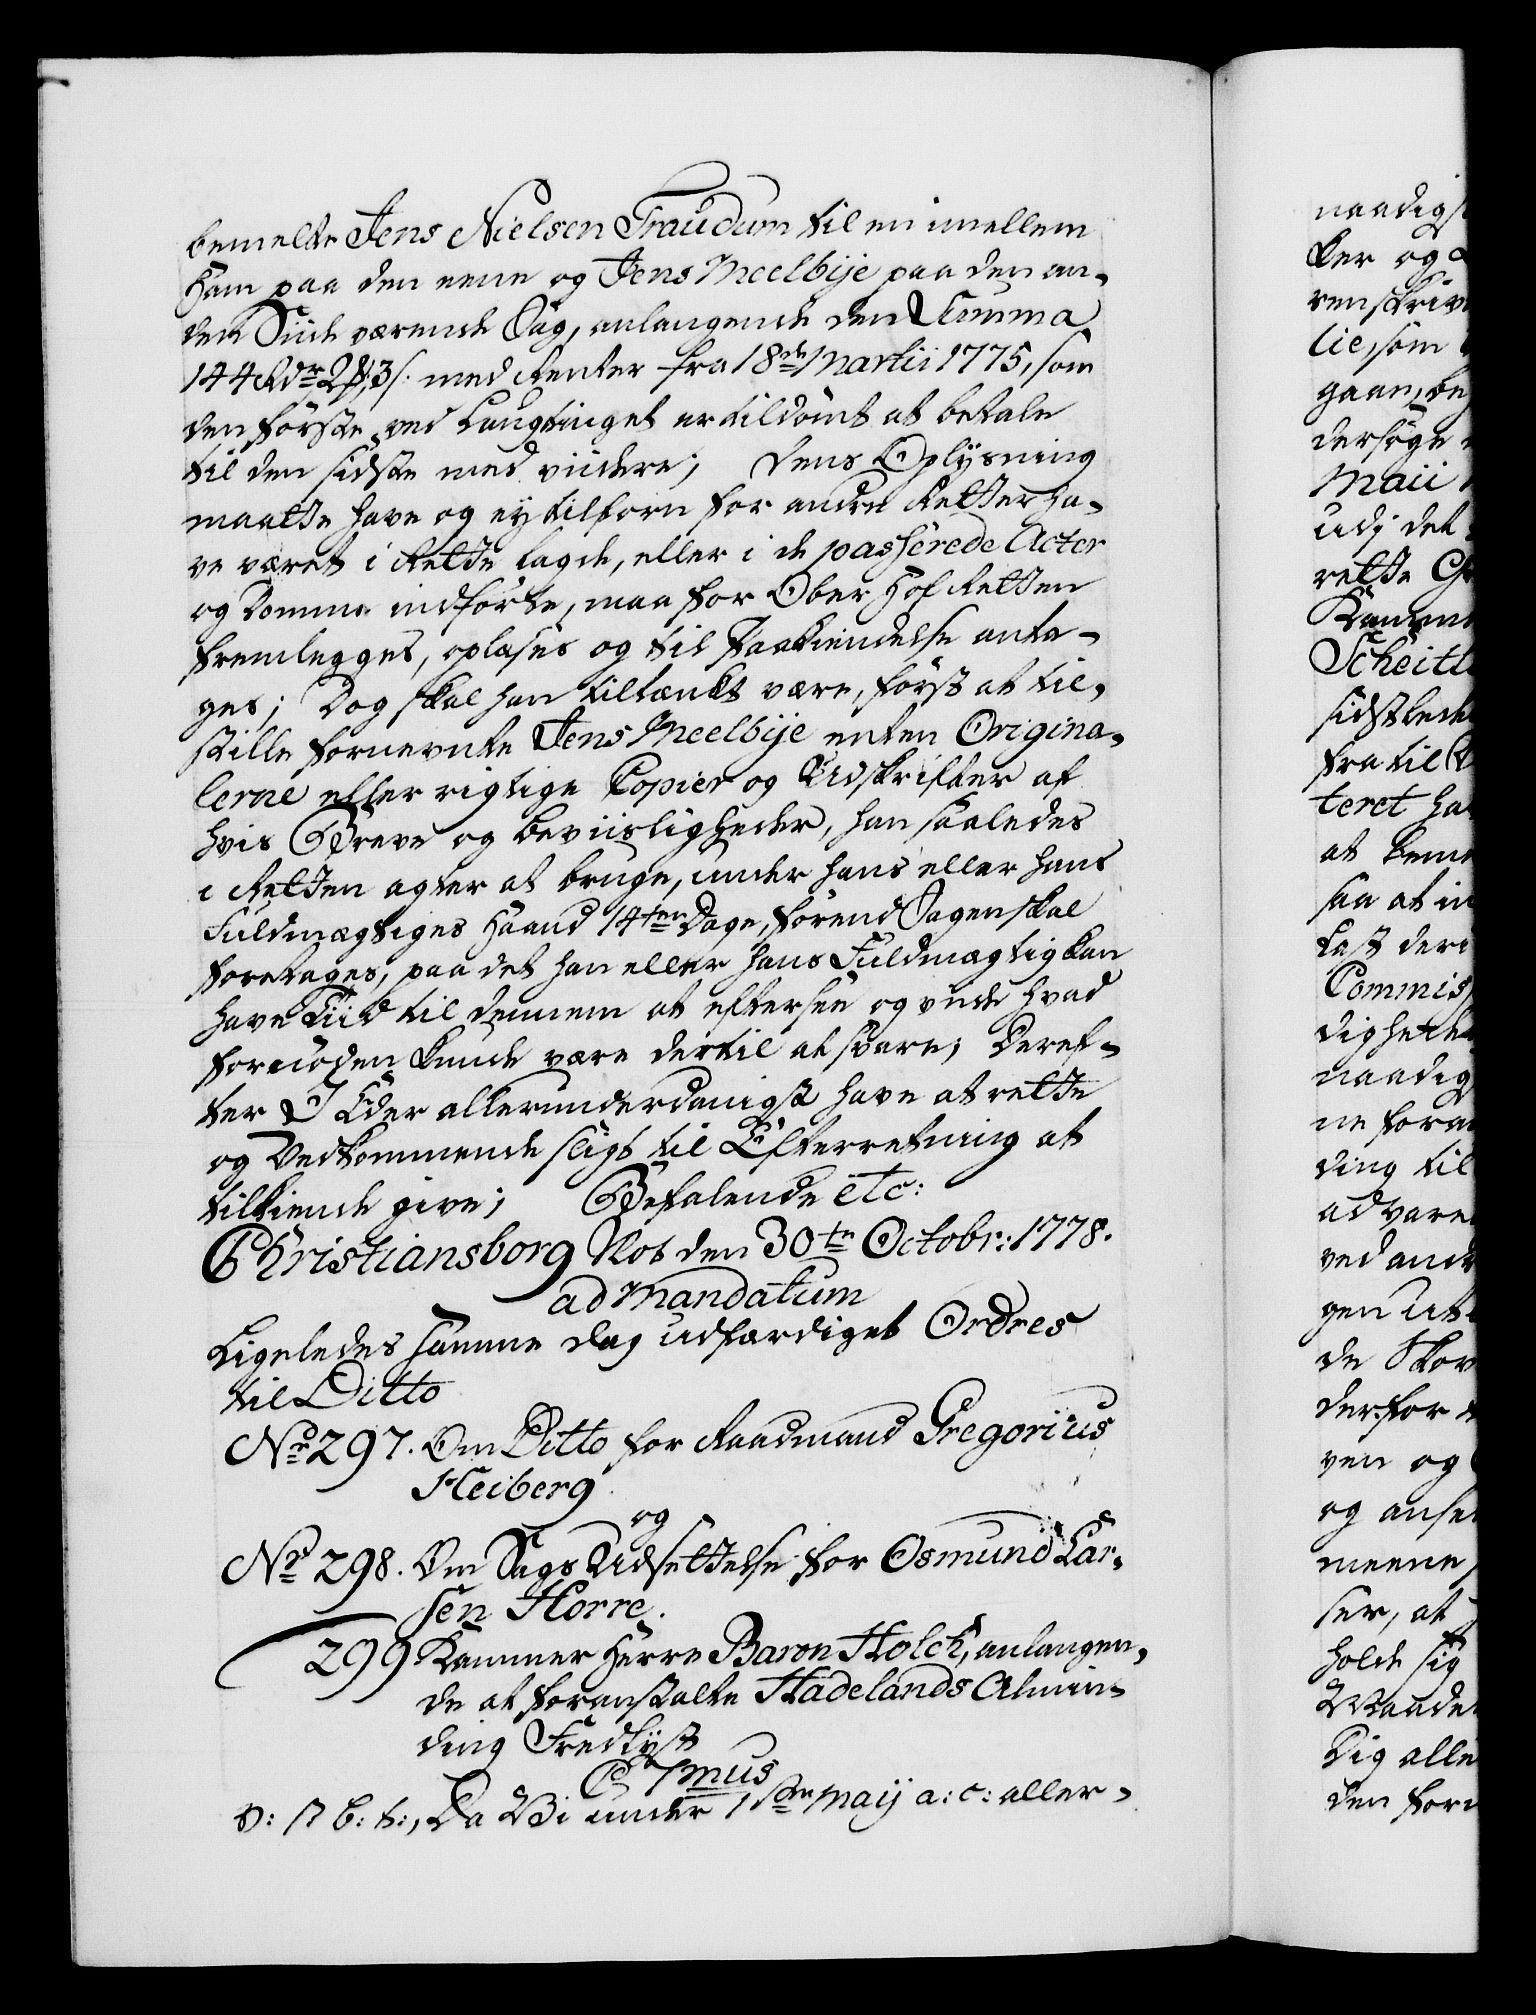 bemelte Jens Nielsen Traudum til en imellem
Ham paa den eene og Jens Meelbije paa den an-
den Siide værende Sag, anlangende den Summa
144 Rdr 2 ₰ 3 s. med Renter fra 18de Martii 1775, som
den første ved Laugtinget er tildömt at betale
til den sidste med viidere; dens Oplysning
maatte have og ey tilforn for andre Retter ha-
ve været i Rette lagde, eller i de passerede Acter
og Domme indførte, maa for Ober Hof Retten
fremlegges, oplæses og til Paakiendelse anta-
ges; Dog skal han tiltænkt være, først at til-
stille fornevnte Jens Meelbije enten Origina-
lerne eller rigtige Copier og Udskrifter af
hvis Breve og beviisligheder, han saaledes
i Retten agter at bruge, under hans eller hans
Fuldmægtiges Haand 14ten Dage, førend Sagen skal
foretages, paa det han eller hans Fuldmægtig kan
have Tiid til dennem at eftersee og vide hvad
fornöden kunde være dertil at svare; Deref-
ter I Eder allerunderdanigst have at rette
og Vedkommende sligt til Efterretning at
tilkiende give; Befalende etc:
Christiansborg Slot den 30te Octobr: 1778.
ad Mandatum
Ligeledes samme dag udfærdiget Ordres
til Ditto
No 297. Om Ditto for Raadmand Gregorius
Heiberg
og
No 298. Om Sags Udsettelse for Osmund Lar-
sen Horre.
299 Kammer Herre Baron Holck, anlangen-
de at foranstalte Hadelands Almin-
ding Fredlyst
C 7mus
V: S b: t:, Da Vi under 1ste Maij a: c: aller-
naadigst
ker og
renskriv
lie, som
gaan, be
dersøge
Maii
udj det
rette
Kamme
Scheitl
sidstled
fra til
teret ha
at kem
saa at in
kast deri
Commis
dighede
naadig
ne foran
ding til
advare
ved andr
gen ud
de Skov
derfor
ven og
og anse
meene
ser, at
holde sig
Maade
Dig alle
den forn